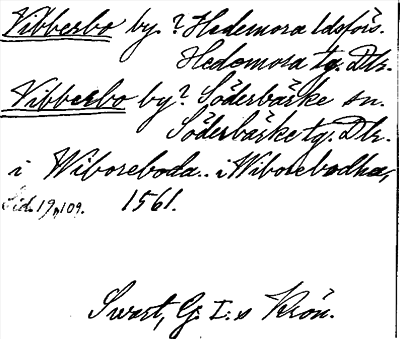 Vibberbo by? Hedemora ldsförs.
Hedemora tg. Dlr.
Vibberbo by? Söderbärke sn.
Söderbärke tg. Dlr.
i Wiboreboda.. i Wiborebodha,
Sid. 19, 109. 1561.
Swart, G. I:s Krön.